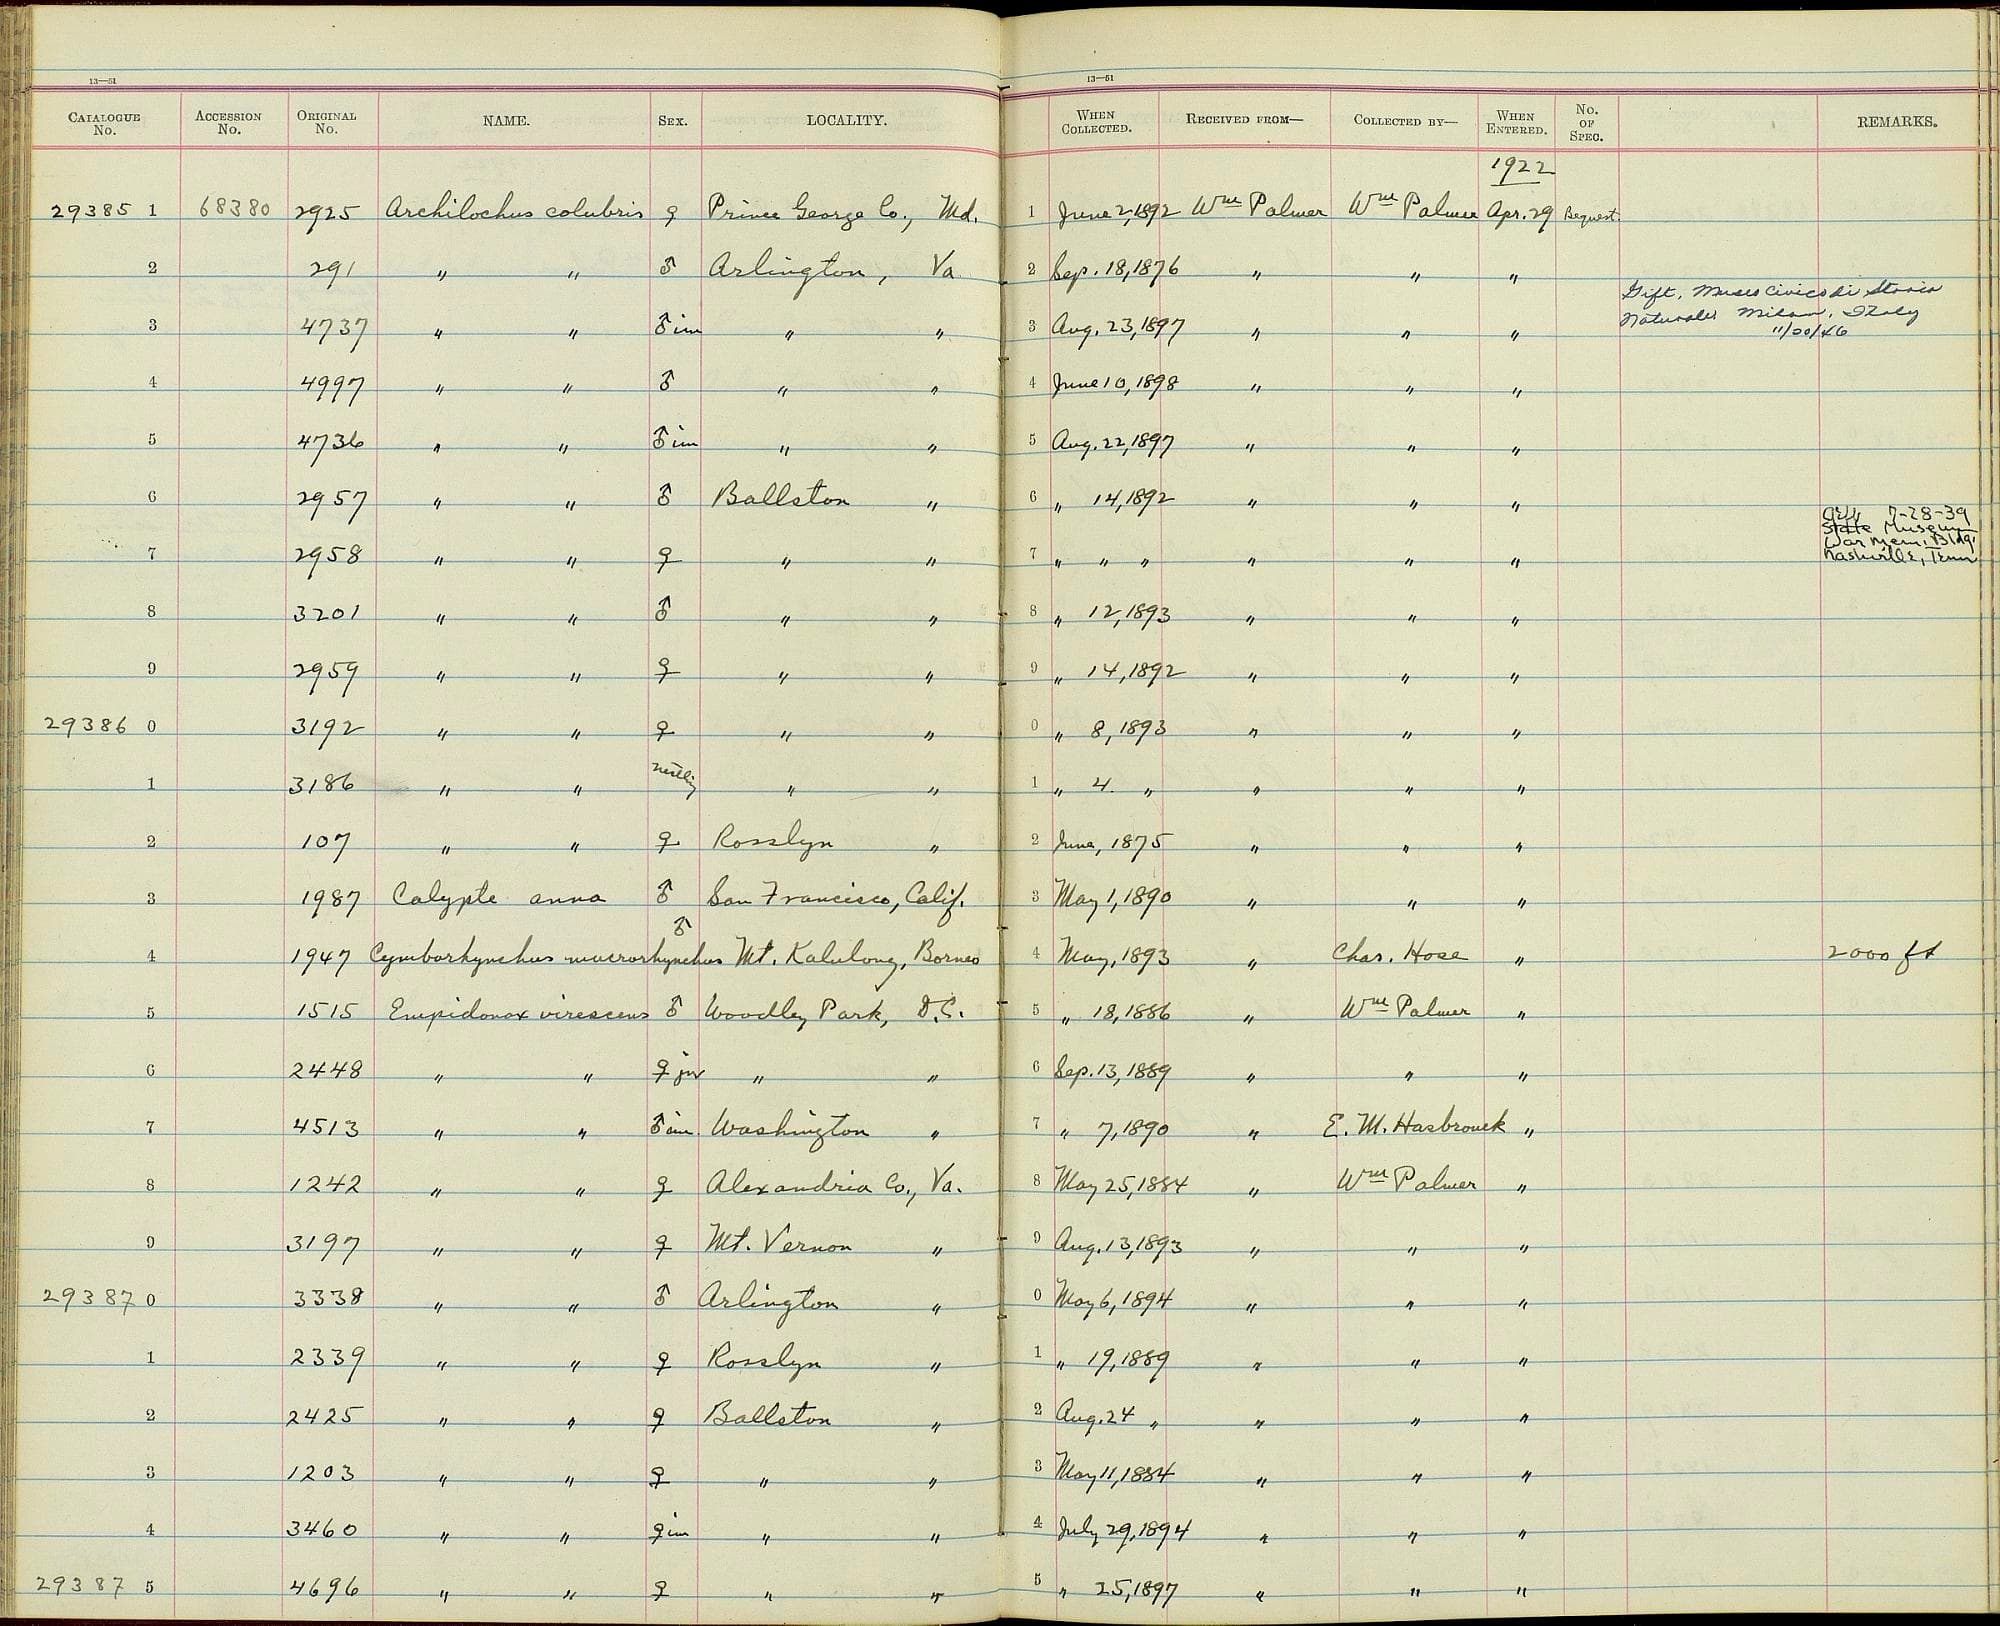 13—51
13—51
CATALOGUE No. ACCESSION No. ORIGINAL No. NAME. SEX. LOCALITY. WHEN COLLECTED. RECEIVED FROM— COLLECTED BY— WHEN ENTERED. No. OF SPEC. REMARKS.
1922
29385 1 68380 2925 Archilochus colubris ♀ Prince George Co., Md. 1 June 2, 1892 Wm Palmer Wm Palmer Apr. 29 Bequest.
2 291 " " ♂ Arlington, Va 2 Sep. 18, 1876 " " "
3 4737 " " ♂ im " " 3 Aug. 23, 1897 " " " Gift, Museo Civico di Storia
Naturale Milan, Italy
11/20/46
4 4997 " " ♂ " " 4 June 10, 1898 " " "
5 4736 " " ♂ im " " 5 Aug. 22, 1897 " " "
6 2957 " " ♂ Ballston " 6 " 14, 1892 " " "
7-28-39
State Museum
War Mem. Bldg.
Nashville, Tenn
7 2958 " " ♀ " " 7 " " " " " "
8 3201 " " ♂ " " 8 " 12, 1893 " " "
9 2959 " " ♀ " " 9 " 14, 1892 " " "
29386 0 3192 " " ♀ " " 0 " 8, 1893 " " "
1 3186 " " nestling " " 1 " 4 " " " "
2 107 " " ♀ Rosslyn " 2 June, 1875 " " "
3 1987 Calypte anna ♂ San Francisco, Calif. 3 May 1, 1890 " " "
4 1947 Cymborhynchus macrorhynchus ♂ Mt. Kalulong, Borneo 4 May, 1893 " Chas. Hose " 2000 ft
5 1515 Empidonax virescens ♂ Woodley Park, D.C. 5 " 18, 1886 " Wm Palmer "
6 2448 " " ♀ juv " " 6 Sep. 13, 1889 " " "
7 4513 " " ♂ im Washington " 7 " 7, 1890 " E. M. Hasbrouck "
8 1242 " " ♀ Alexandria Co., Va. 8 May 25, 1884 " Wm Palmer "
9 3197 " " ♀ Mt. Vernon " 9 Aug. 13, 1893 " " "
29387 0 3338 " " ♂ Arlington " 0 May 6, 1894 " " "
1 2339 " " ♀ Rosslyn " 1 " 19, 1889 " " "
2 2425 " " ♀ Ballston " 2 Aug. 24 " " " "
3 1203 " " ♀ " " 3 May 11, 1884 " " "
4 3460 " " ♀ im " " 4 July 29, 1894 " " "
29387 5 4696 " " ♀ " " 5 " 25, 1897 " " "